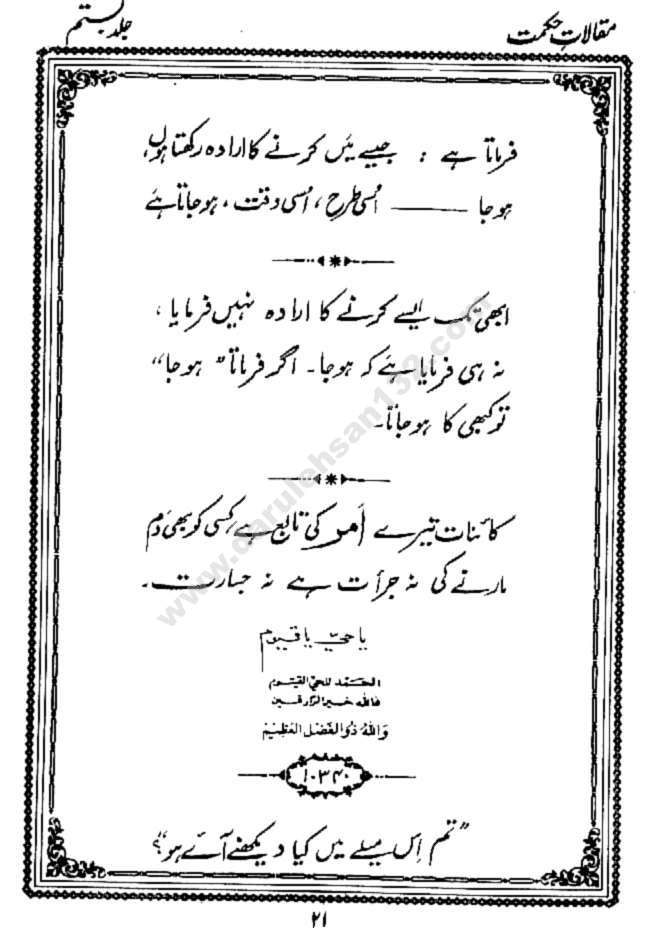 مقالاتِ حکمت
جلد بستم
فرماتا ہے : جیسے میں کرنے کا ارادہ رکھتا ہوں،
ہو جا ——— اُسی طرح ، اُسی وقت ، ہو جاتا ہے
ابھی تک ایسے کرنے کا ارادہ نہیں فرمایا ،
نہ ہی فرمایا ہے کہ ہو جا۔ اگر فرماتا " ہو جا"
تو کبھی کا ہو جاتا۔
کائنات تیرے اَمر کی تابع ہے، کسی کو بھی دَم
مارنے کی نہ جرأت ہے نہ جسارت۔
یا حیّ یا قیوم
الحَمد للحیّ القیّوم
فاللہ خیر الرازقین
وَاللہُ ذُوالفَضل العَظِیم
۱۰۳۴۰
"تم اِس میلے میں کیا دیکھنے آئے ہو؟"
۲۱
www.darulehsan139.com